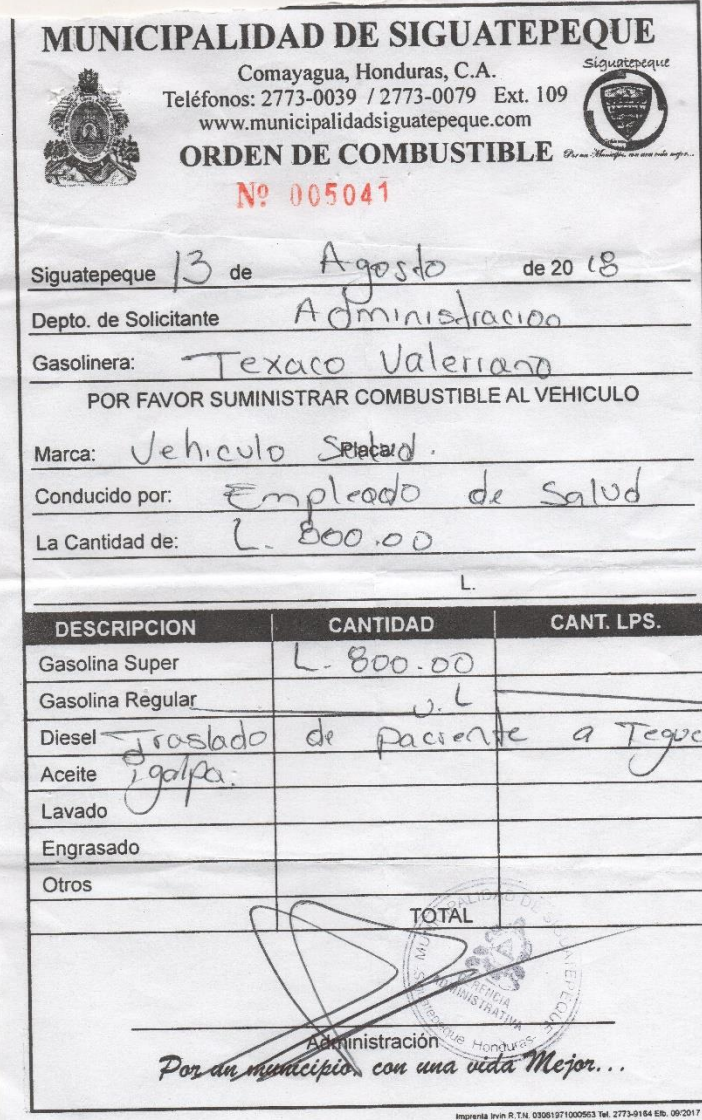 MUNICIPALIDAD DE SIGUATEPEQUE
Comayagua, Honduras, C.A.
Siguatepeque
Teléfonos: 2773-0039 / 2773-0079 Ext. 109
www.municipalidadsiguatepeque.com
ORDEN DE COMBUSTIBLE
Por un Municipio, con una vida mejor...
Nº 005041
Siguatepeque 13 de Agosto de 2018
Depto. de Solicitante Administracion
Gasolinera: Texaco Valeriano
POR FAVOR SUMINISTRAR COMBUSTIBLE AL VEHICULO
Marca: Vehiculo Salud. Placa:
Conducido por: Empleado de Salud
La Cantidad de: L. 800.00
L.
DESCRIPCION CANTIDAD CANT. LPS.
Gasolina Super L. 800.00
Gasolina Regular U.L
Diesel Traslado de paciente a Teguc
Aceite igalpa.
Lavado
Engrasado
Otros
TOTAL
MUNICIPALIDAD DE SIGUATEPEQUE
GERENCIA
ADMINISTRATIVA
Siguatepeque Honduras
Administración
Por un municipio, con una vida Mejor...
Imprenta Irvin R.T.N. 03061971000563 Tel. 2773-9164 Elb. 09/2017